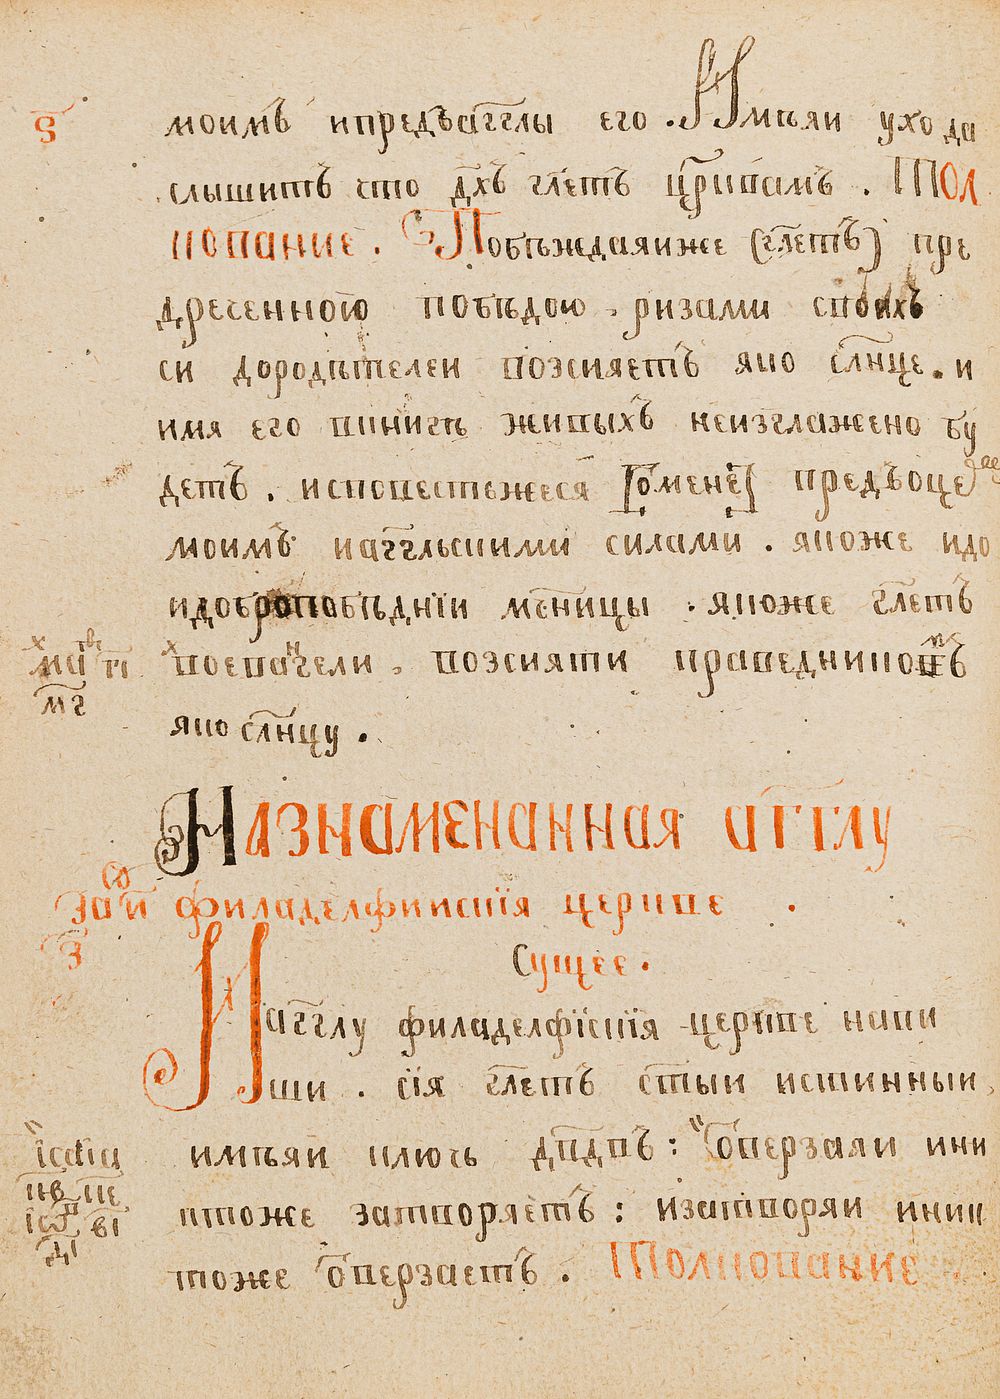 ѕ҃
моимъ ипредъаг҃глы его . Имѣяи ухо да
слышитъ что д҃хъ гл҃етъ цр҃квамъ . Тол
кование . Побѣждаяиже (гл҃етъ) пре
дреченною побѣдою . ризами своихъ
си дородѣтелеи возсияетъ яко сл҃нце . и
имя его вкнигѣ живыхъ неизглажено бу
детъ . исповѣстьжеся [ѡменѐ] предъоце
моимъ иаг҃гльскими силами . якоже идо
идобропобѣднїи мч҃ницы . якоже гл҃етъ
воева҃гели . возсияти праведникомъ
яко сл҃нцу .
ма тв гі
м҃г
Назнаменанная аг҃глу
филаделфиискїя церкве .
Сущее .
за҃ч
з҃
Наг҃глу филаделфїискїя церкве напи
ши . сїя гл҃етъ ст҃ыи истинныи
имѣяи ключь дв҃двъ : ѿверзаяи ини
ктоже затворяетъ : изатворяи иник
тоже ѿверзаетъ . Толкование .
ісаіа
кв